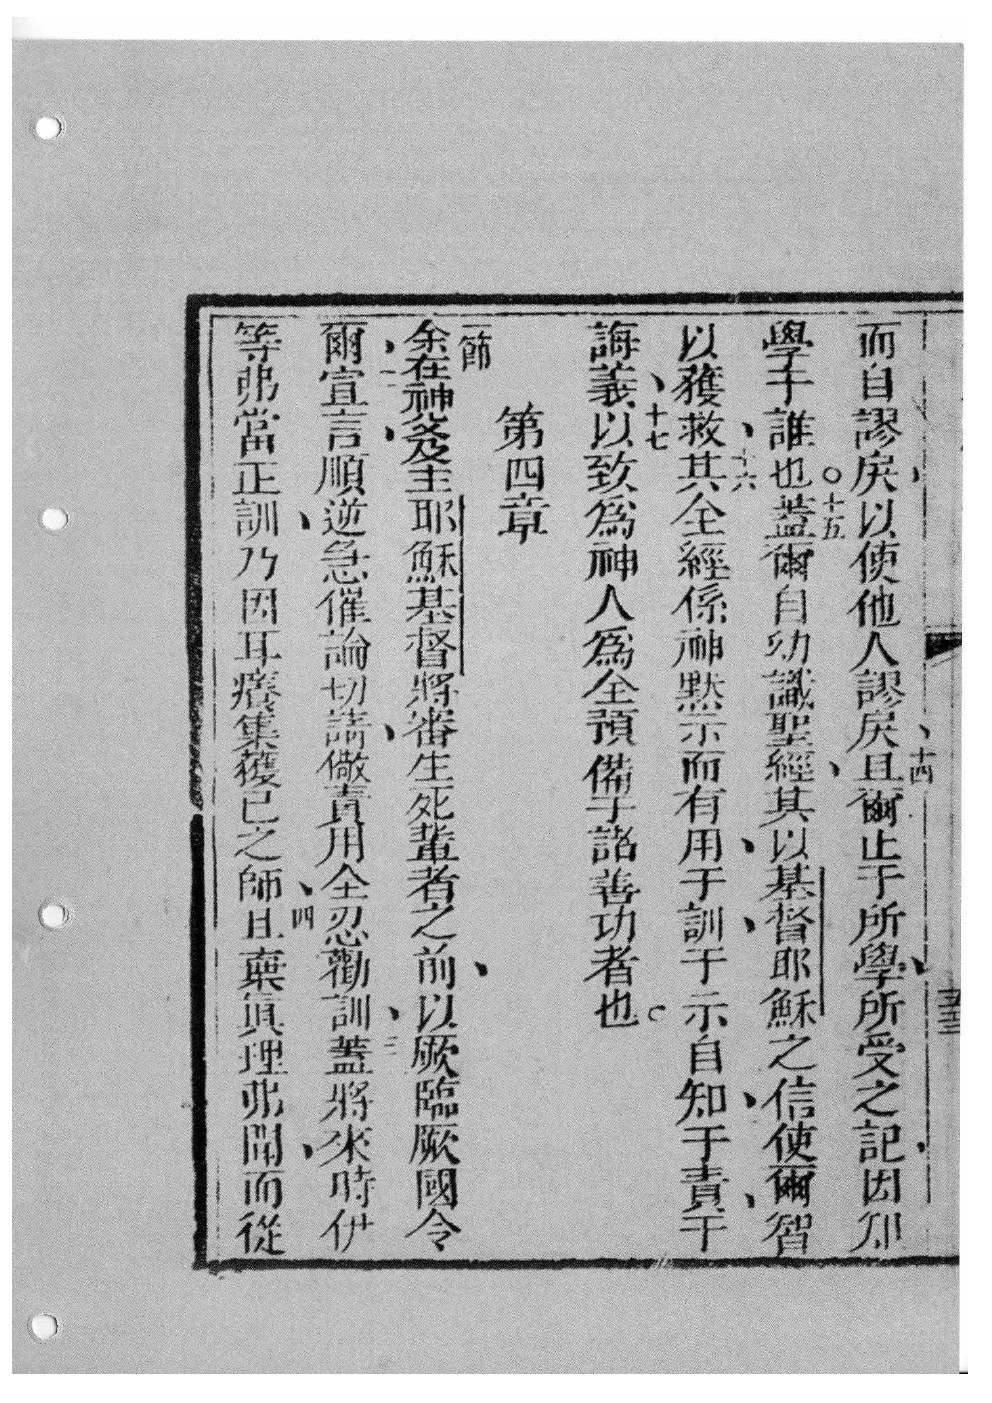 而自謬戾、以使他人謬戾、十四且爾止于所學、所受之記、因知
學于誰也○十五蓋爾自幼識聖經、其以基督耶穌之信使爾智
以獲救、十六其全經係神默示而有用、于訓、于示自知、于責、于
誨義、十七以致為神人為全預備于諸善功者也。
第四章
一節余在神及主耶穌基督將審生死輩者之前、以厥臨厥國令
爾、二宣言、順逆急催論切請、儆責用全忍勸訓、三蓋將來時伊
等弗當正訓、乃因耳癢集獲已之師、四且棄真理弗聞、而從